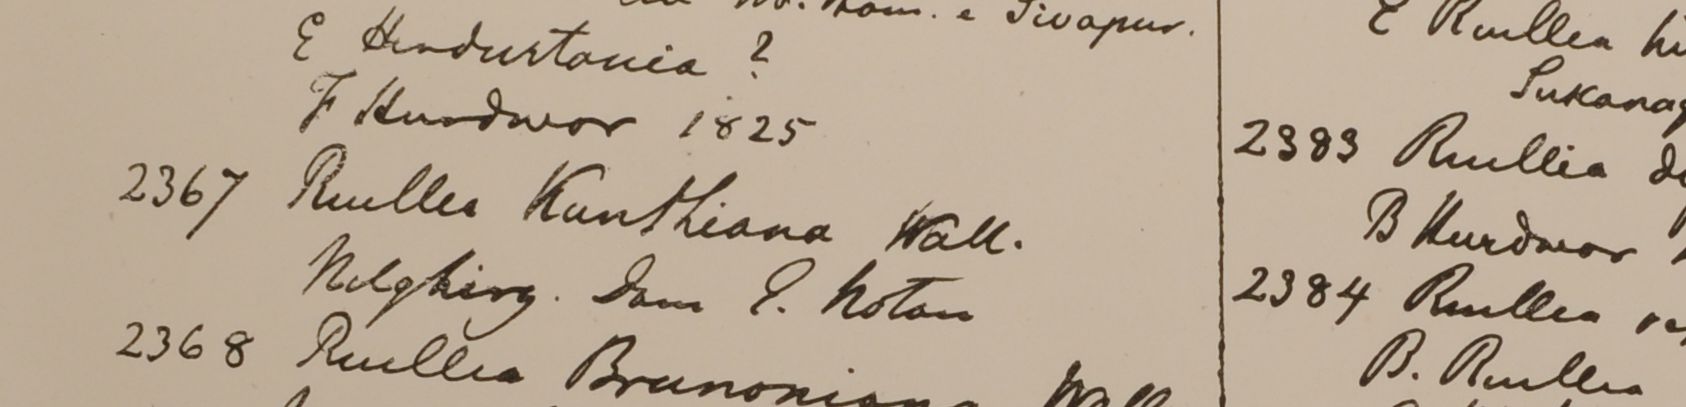 Wt. Ham. e Sivapur.
E Hindustania ?
F Hurdwar 1825
2367 Ruellia Kunthiana Wall.
Nilghiry. Dom E. Noton
2368 Ruellia Brunoniana Wall
E Ruellia hi
Sukanag
2383 Ruellia de
B Hurdwar
2384 Ruellia re
B. Ruellia